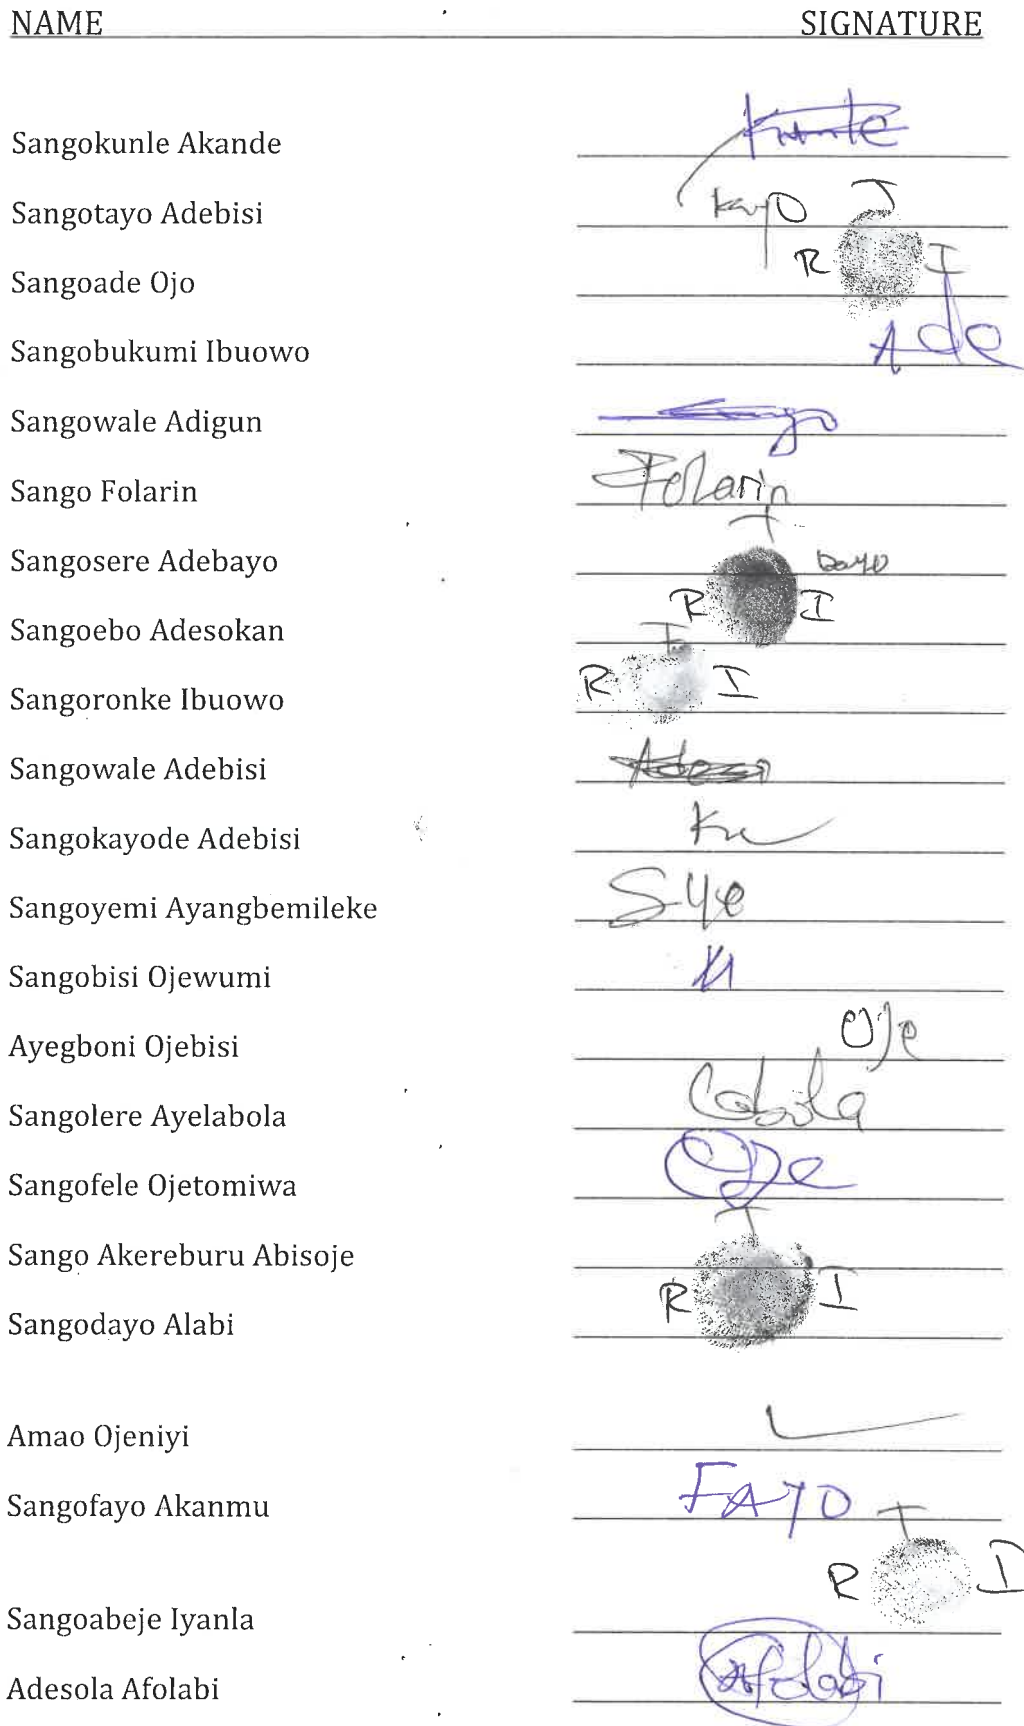 NAME SIGNATURE
Sangokunle Akande Kunle
Sangotayo Adebisi Kayo T
R I
Sangoade Ojo
Sangobukumi Ibuowo Ade
Sangowale Adigun
Sango Folarin Folarin
T
Sangosere Adebayo Bayo
R I
Sangoebo Adesokan T
R I
Sangoronke Ibuowo
Sangowale Adebisi
Sangokayode Adebisi
Sangoyemi Ayangbemileke Sye
Sangobisi Ojewumi
Ayegboni Ojebisi Oje
Sangolere Ayelabola Labola
Sangofele Ojetomiwa Oje
T
Sango Akereburu Abisoje
R I
Sangodayo Alabi
Amao Ojeniyi
Sangofayo Akanmu FAYO T
R I
Sangoabeje Iyanla
Adesola Afolabi Afolabi